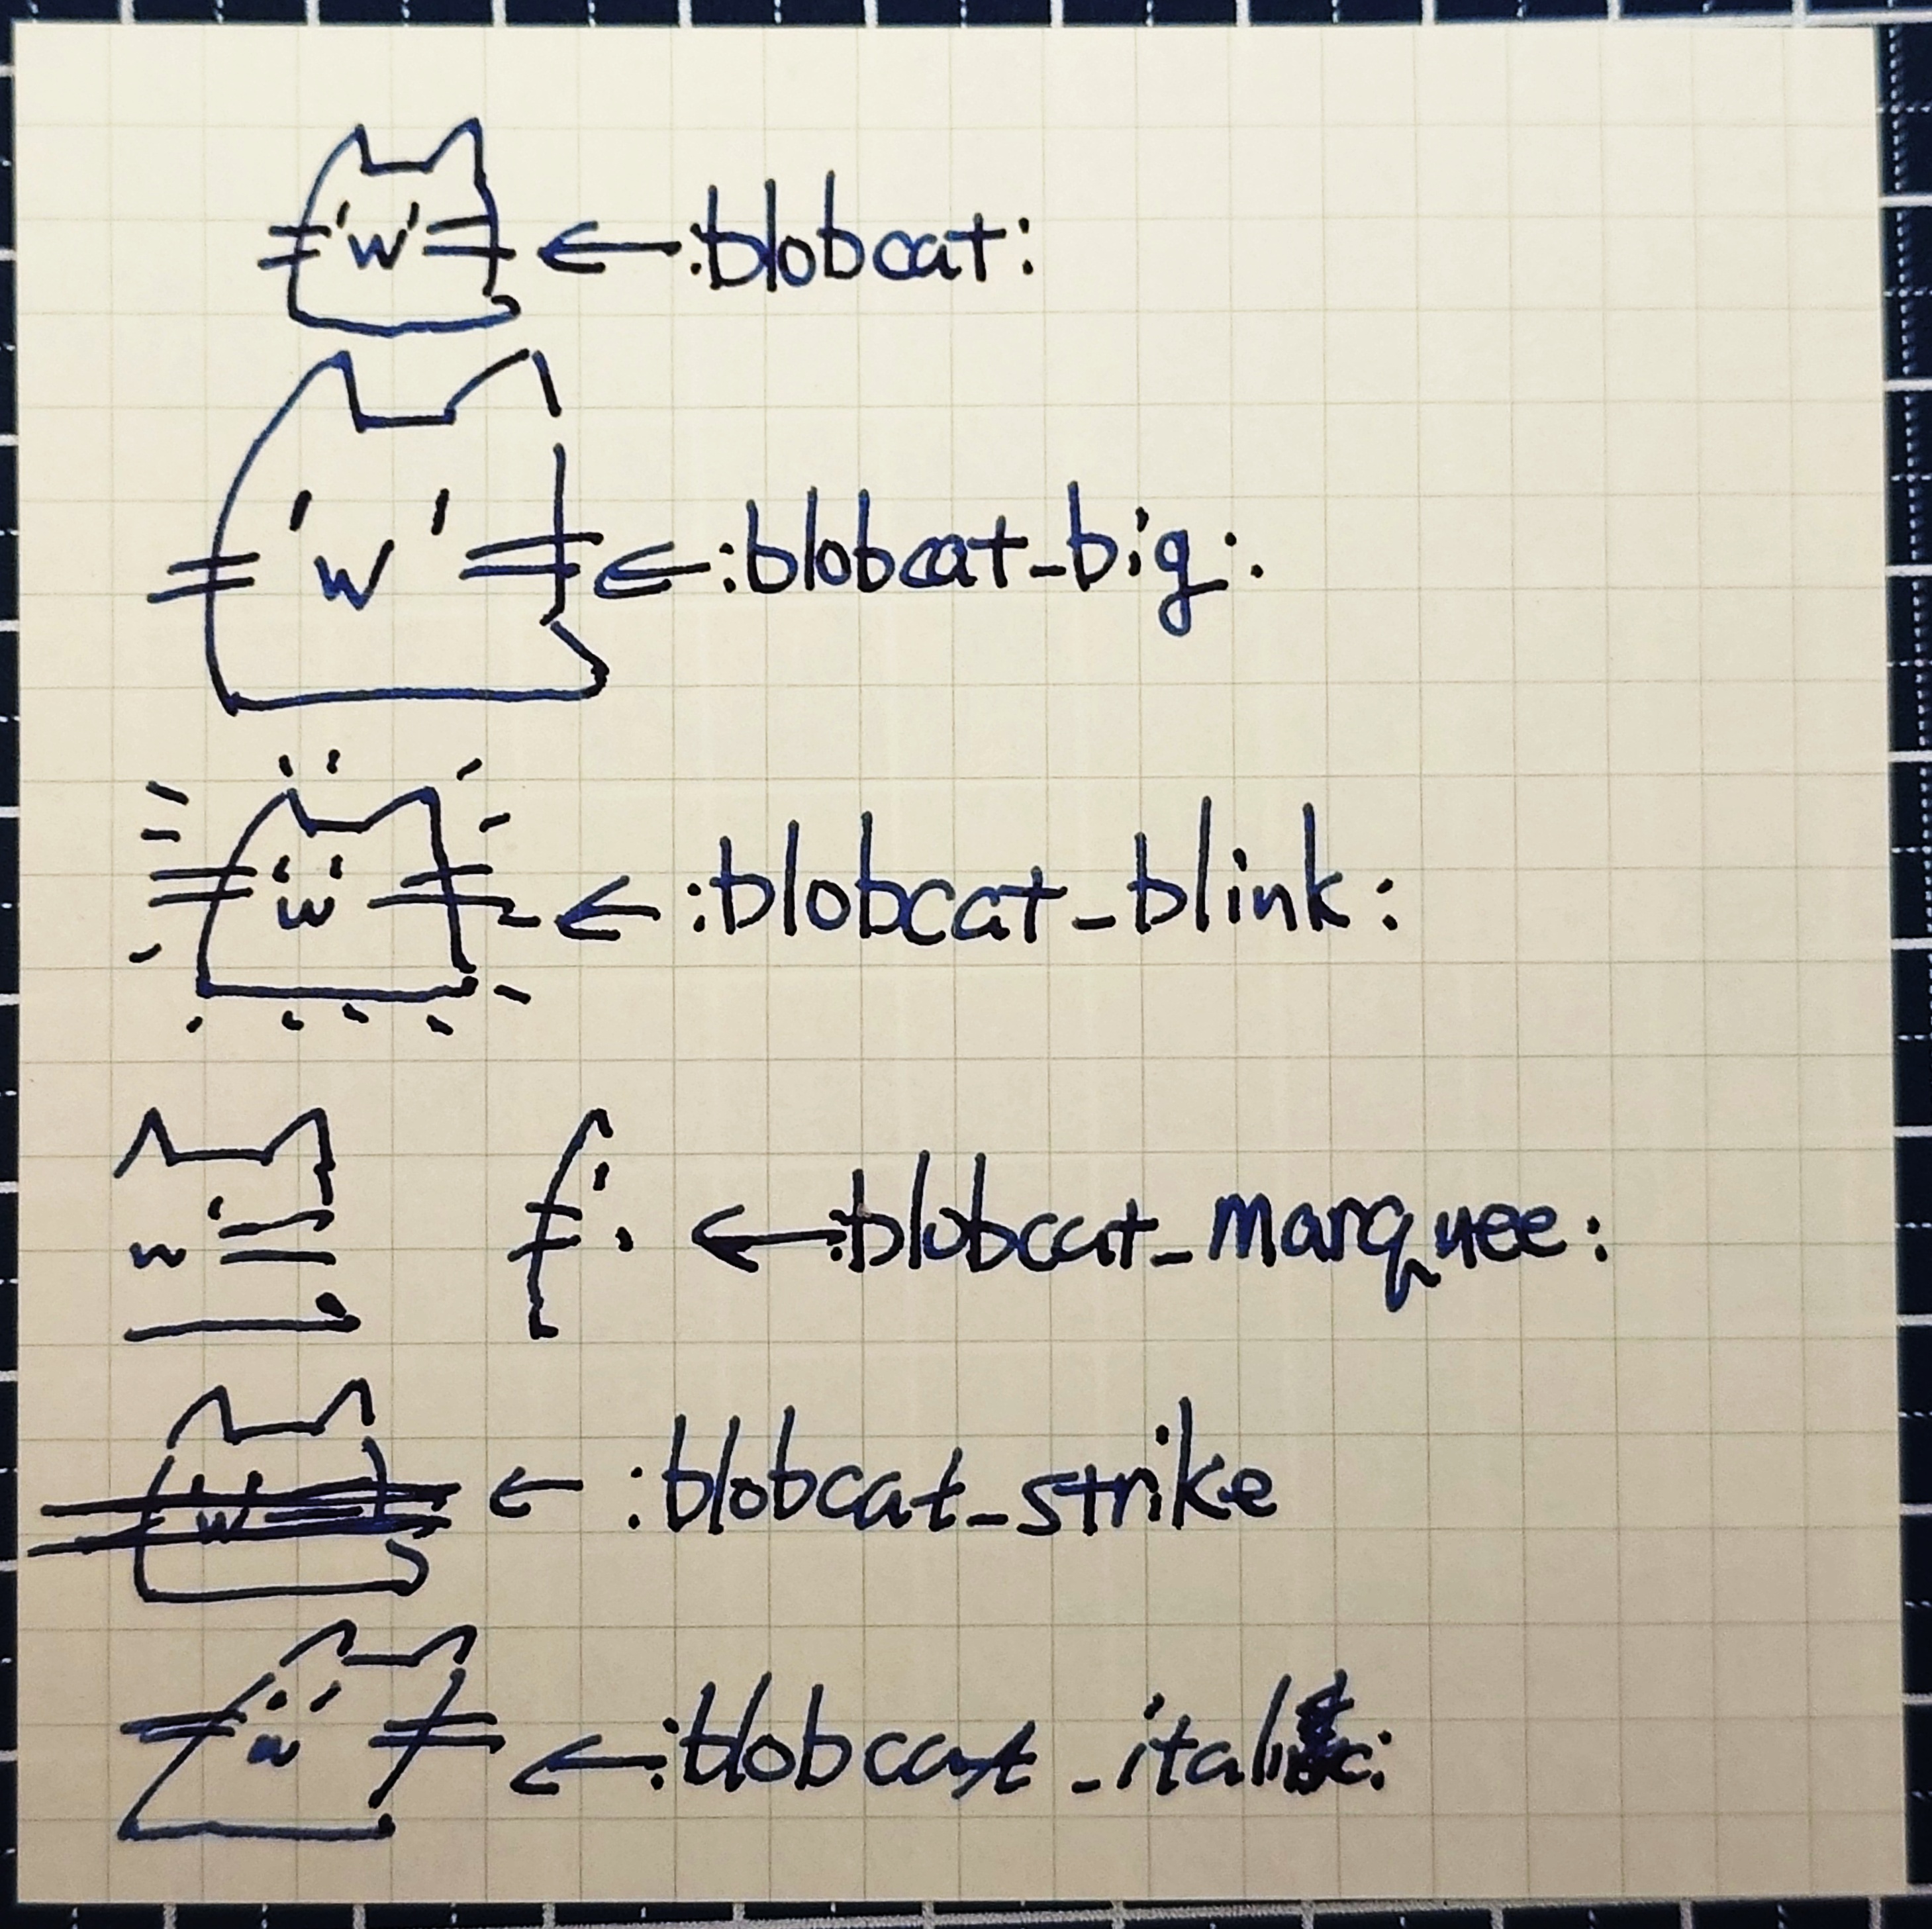 'w' ← :blobcat:
'w' ← :blobcat_big:
'w' ← :blobcat_blink:
w' ← :blobcat_marquee:
'w' ← :blobcat_strike
'w' ← :blobcat_italic: